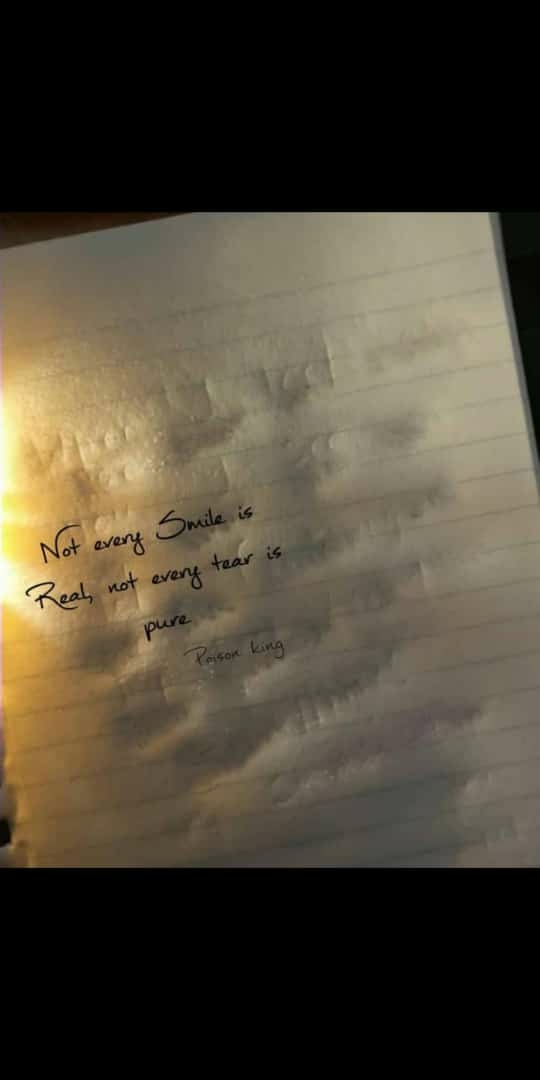 Not every Smile is
Real, not every tear is
pure
Poison king